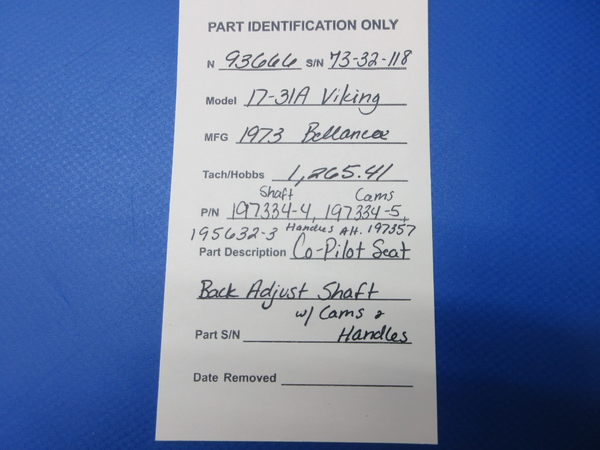 PART IDENTIFICATION ONLY
N 93666 S/N 73-32-118
Model 17-31A Viking
MFG 1973 Bellanca
Tach/Hobbs 1,265.41
Shaft Cams
P/N 197334-4, 197334-5,
195632-3 Handles Alt. 197357
Part Description Co-Pilot Seat
Back Adjust Shaft
w/ Cams &
Part S/N Handles
Date Removed